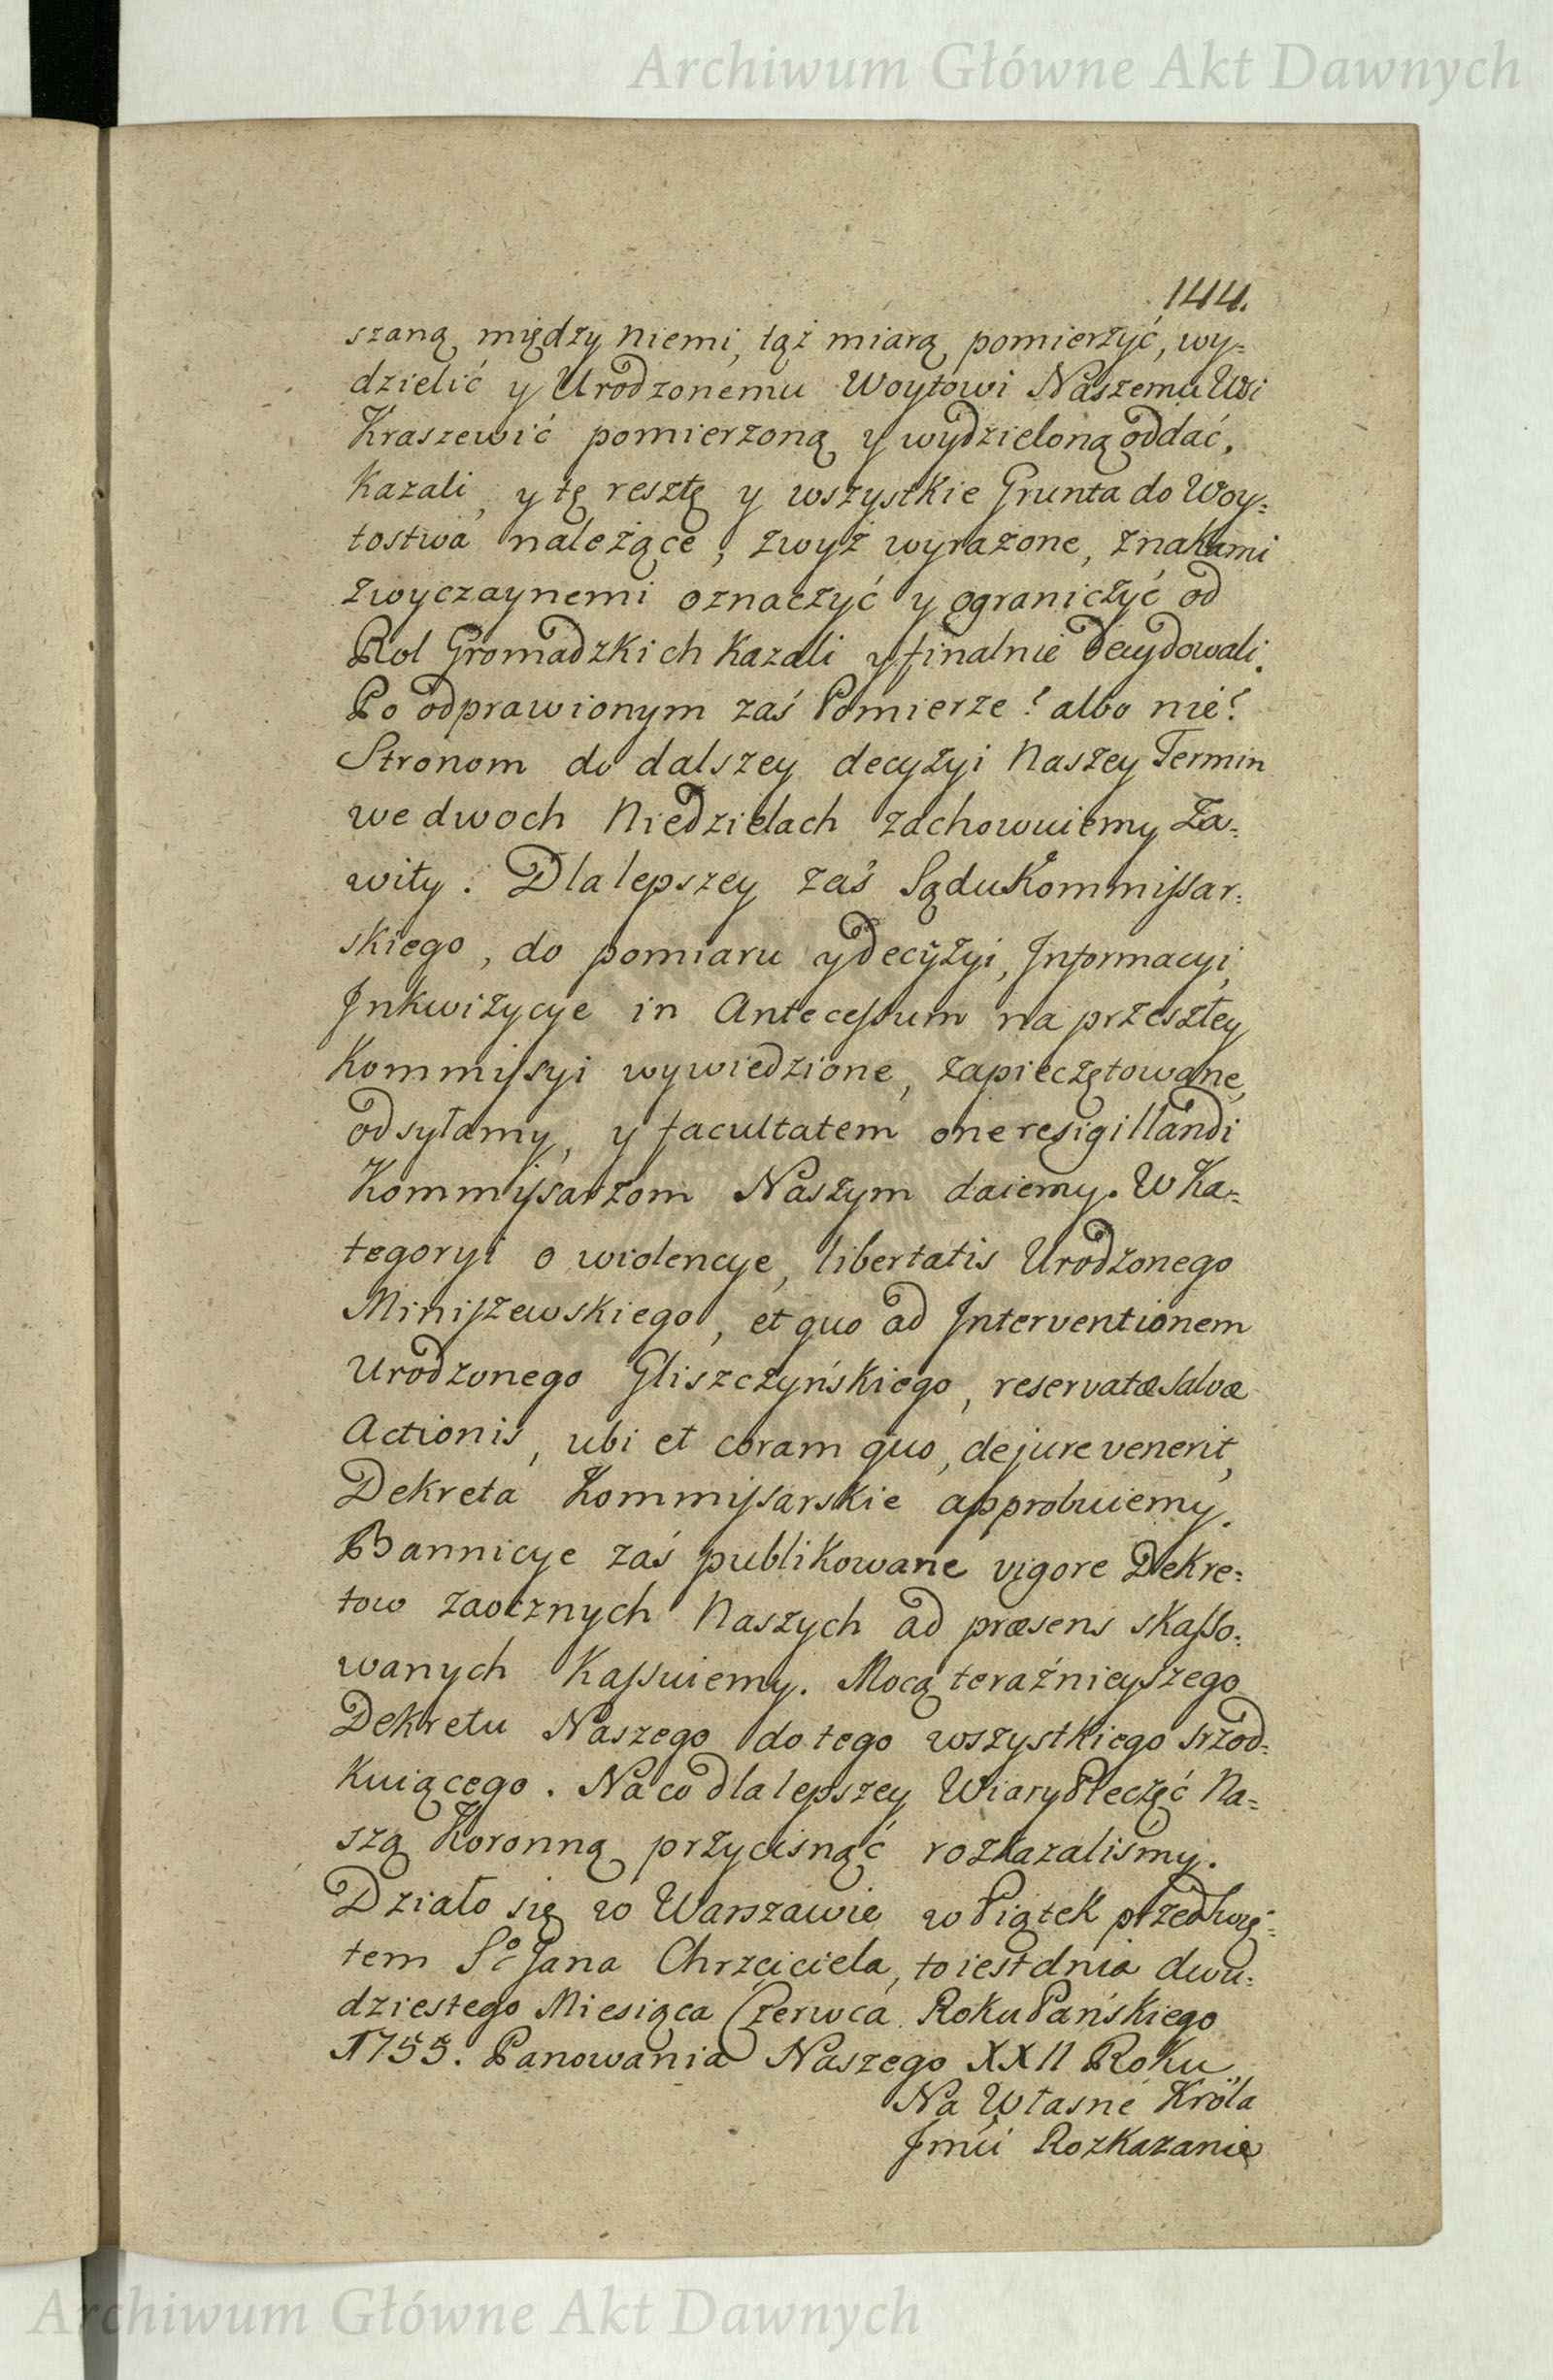 Archiwum Główne Akt Dawnych
144.
szaną między niemi, tąż miarą pomierzyć, wy=
dzielić y Urodzonemu Woytowi Naszemu Wsi
Kraszewić pomierzoną y wydzieloną oddać,
kazali, y tę resztę y wszystkie Grunta do Woy=
tostwa należące, zwyż wyrażone, znakami
zwyczaynemi oznaczyć y ograniczyć od
Rol Gromadzkich kazali y finalnie decydowali.
Po odprawionym zaś Pomierze? albo nie?
Stronom do dalszey decyzyi Naszey Termin
we dwoch Niedzielach zachowuiemy Za=
wity. Dla lepszey zaś Sądu Kommissar=
skiego, do pomiaru y decyzyi, Informacyi,
Inkwizycye in Antecessum na przeszłey
Kommissyi wywiedzione, zapieczętowane,
odsyłamy, y facultatem one resigillandi
Kommissarzom Naszym daiemy. W Ka=
tegoryi o wiolencye, libertatis Urodzonego
Miniszewskiego, et quo ad Interventionem
Urodzonego Gliszczyńskiego, reservatæ salvæ
Actionis, ubi et coram quo, de jure venerit,
Dekreta Kommissarskie approbuiemy.
Bannicye zaś publikowane vigore Dekre=
tow zaocznych Naszych ad præsens skasso=
wanych kassuiemy. Mocą teraźnieyszego
Dekretu Naszego do tego wszystkiego srzod=
kuiącego. Na co dla lepszey Wiary Pieczęć Na=
szą Koronną przycisnąć rozkazaliśmy.
Działo się w Warszawie w Piątek przed Swię=
tem So Jana Chrzciciela, to iest dnia dwu=
dziestego Miesiąca Czerwca Roku Pańskiego
1755. Panowania Naszego XXII Roku
Na Własne Króla
Jmći Rozkazanie
Archiwum Główne Akt Dawnych